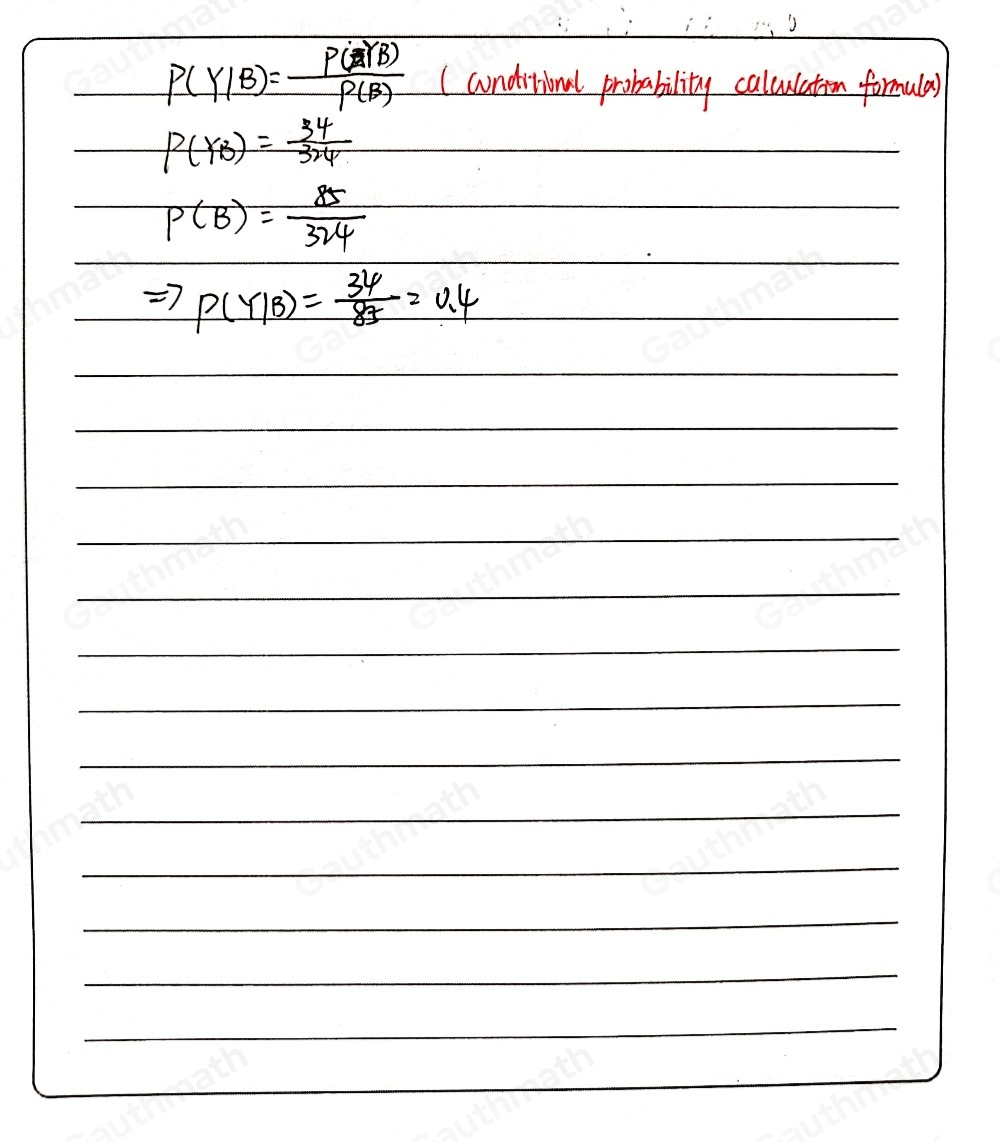 P(Y|B)= P(YB) / P(B) ( conditional probability calculation formula)
P(YB) = 34 / 324
P(B) = 85 / 324
=> P(Y|B) = 34 / 85 = 0.4
Gauthmath